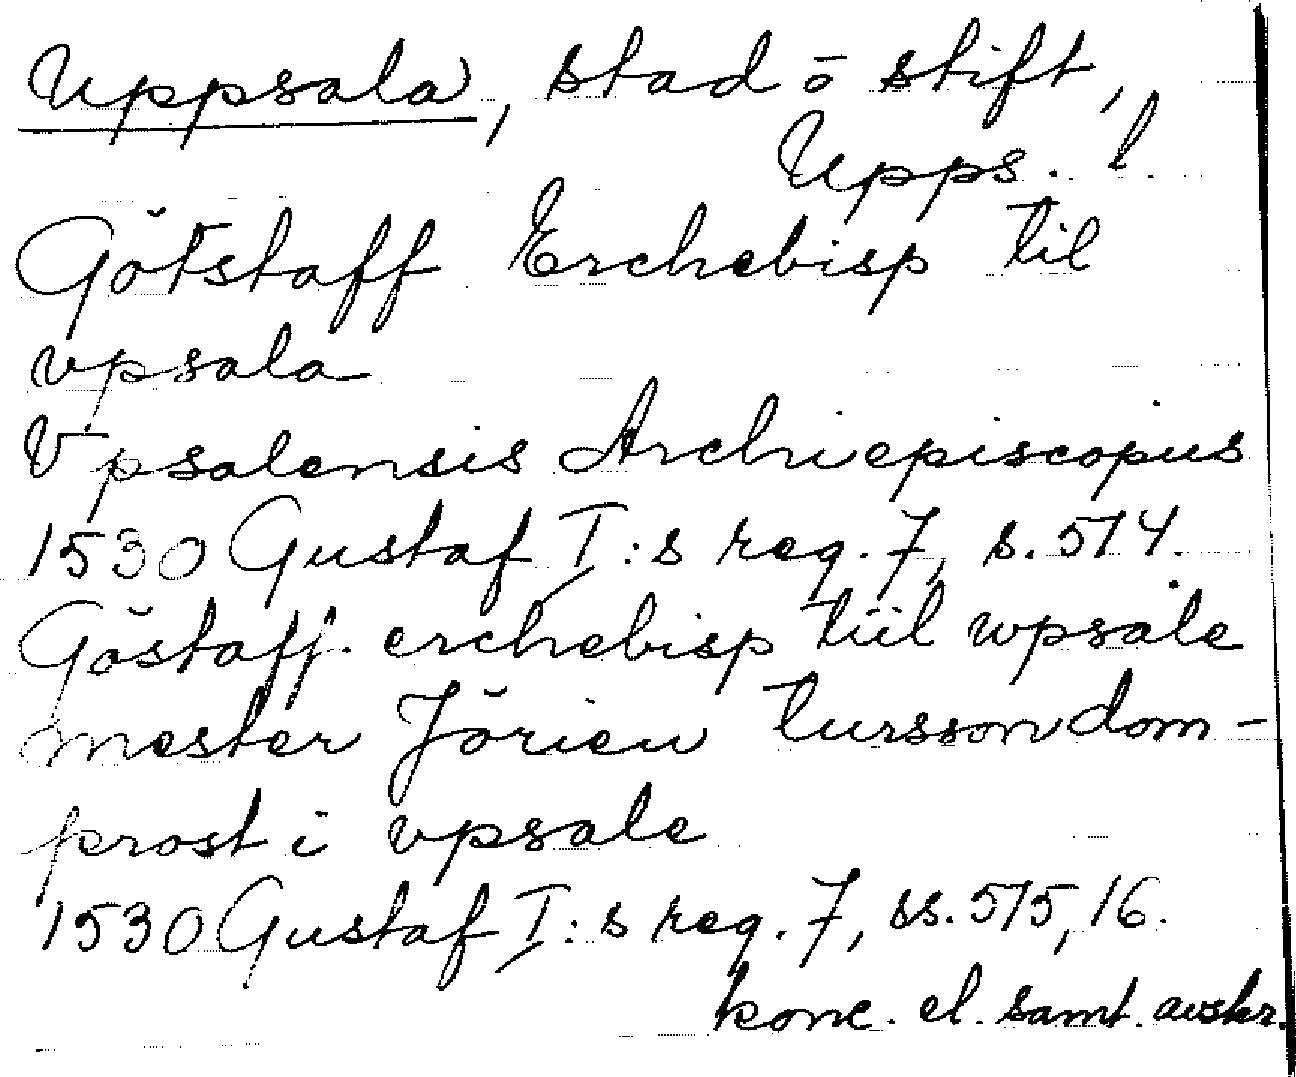 Uppsala, stad o stift,
Upps. l.
Götstaff Erchebisp til
vpsala
Vpsalensis Archiepiscopus
1530 Gustaf I:s reg. 7, s. 514.
Göstaff. erchebisp tiil wpsale
mester Jörien tursson dom-
prost i vpsale
1530 Gustaf I:s reg. 7, ss. 515, 16.
konc. el. samt. avskr.